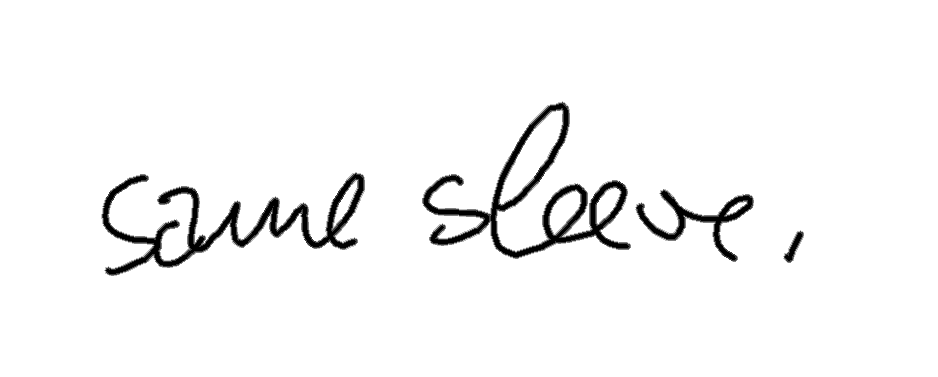 same sleeve,